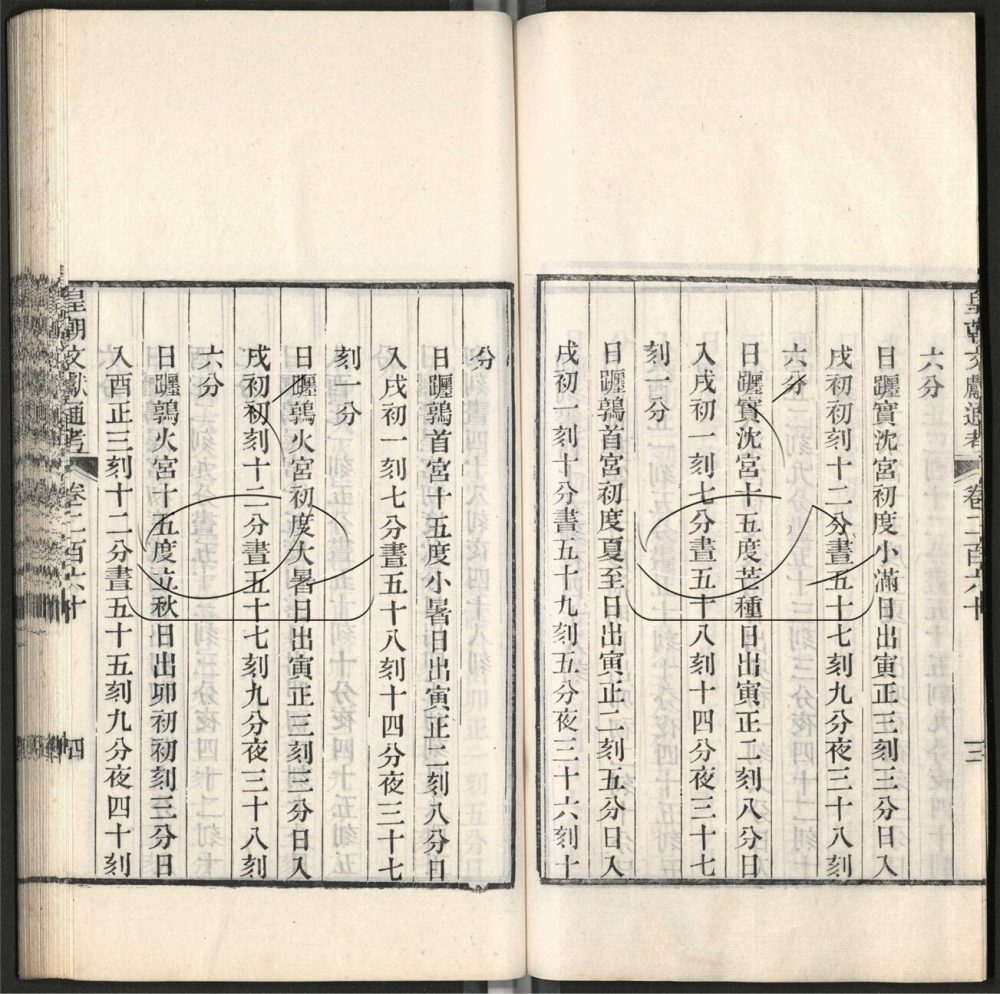 皇朝文獻通考 卷二百六十 三
六分
日躔實沈宮初度小滿日出寅正三刻三分日入
戌初初刻十二分晝五十七刻九分夜三十八刻
六分
日躔實沈宮十五度芒種日出寅正二刻八分日
入戌初一刻七分晝五十八刻十四分夜三十七
刻一分
日躔鶉首宮初度夏至日出寅正二刻五分日入
戌初一刻十分晝五十九刻五分夜三十六刻十
分
日躔鶉首宮十五度小暑日出寅正二刻八分日
入戌初一刻七分晝五十八刻十四分夜三十七
刻一分
日躔鶉火宮初度大暑日出寅正三刻三分日入
戌初初刻十二分晝五十七刻九分夜三十八刻
六分
日躔鶉火宮十五度立秋日出卯初初刻三分日
入酉正三刻十二分晝五十五刻九分夜四十刻
皇朝文獻通考 卷二百六十 四